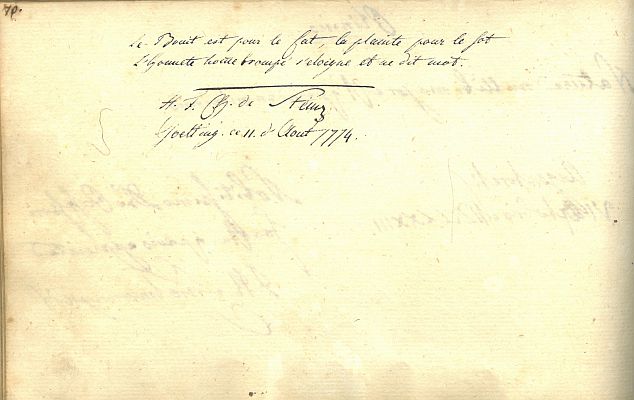 70.
Le Bruit est pour le fat, la plainte pour le sot
L'honnete home trompé s'eloigne et ne dit mot.
H. F. de
Goetting. ce 11. d'Aout 1774.